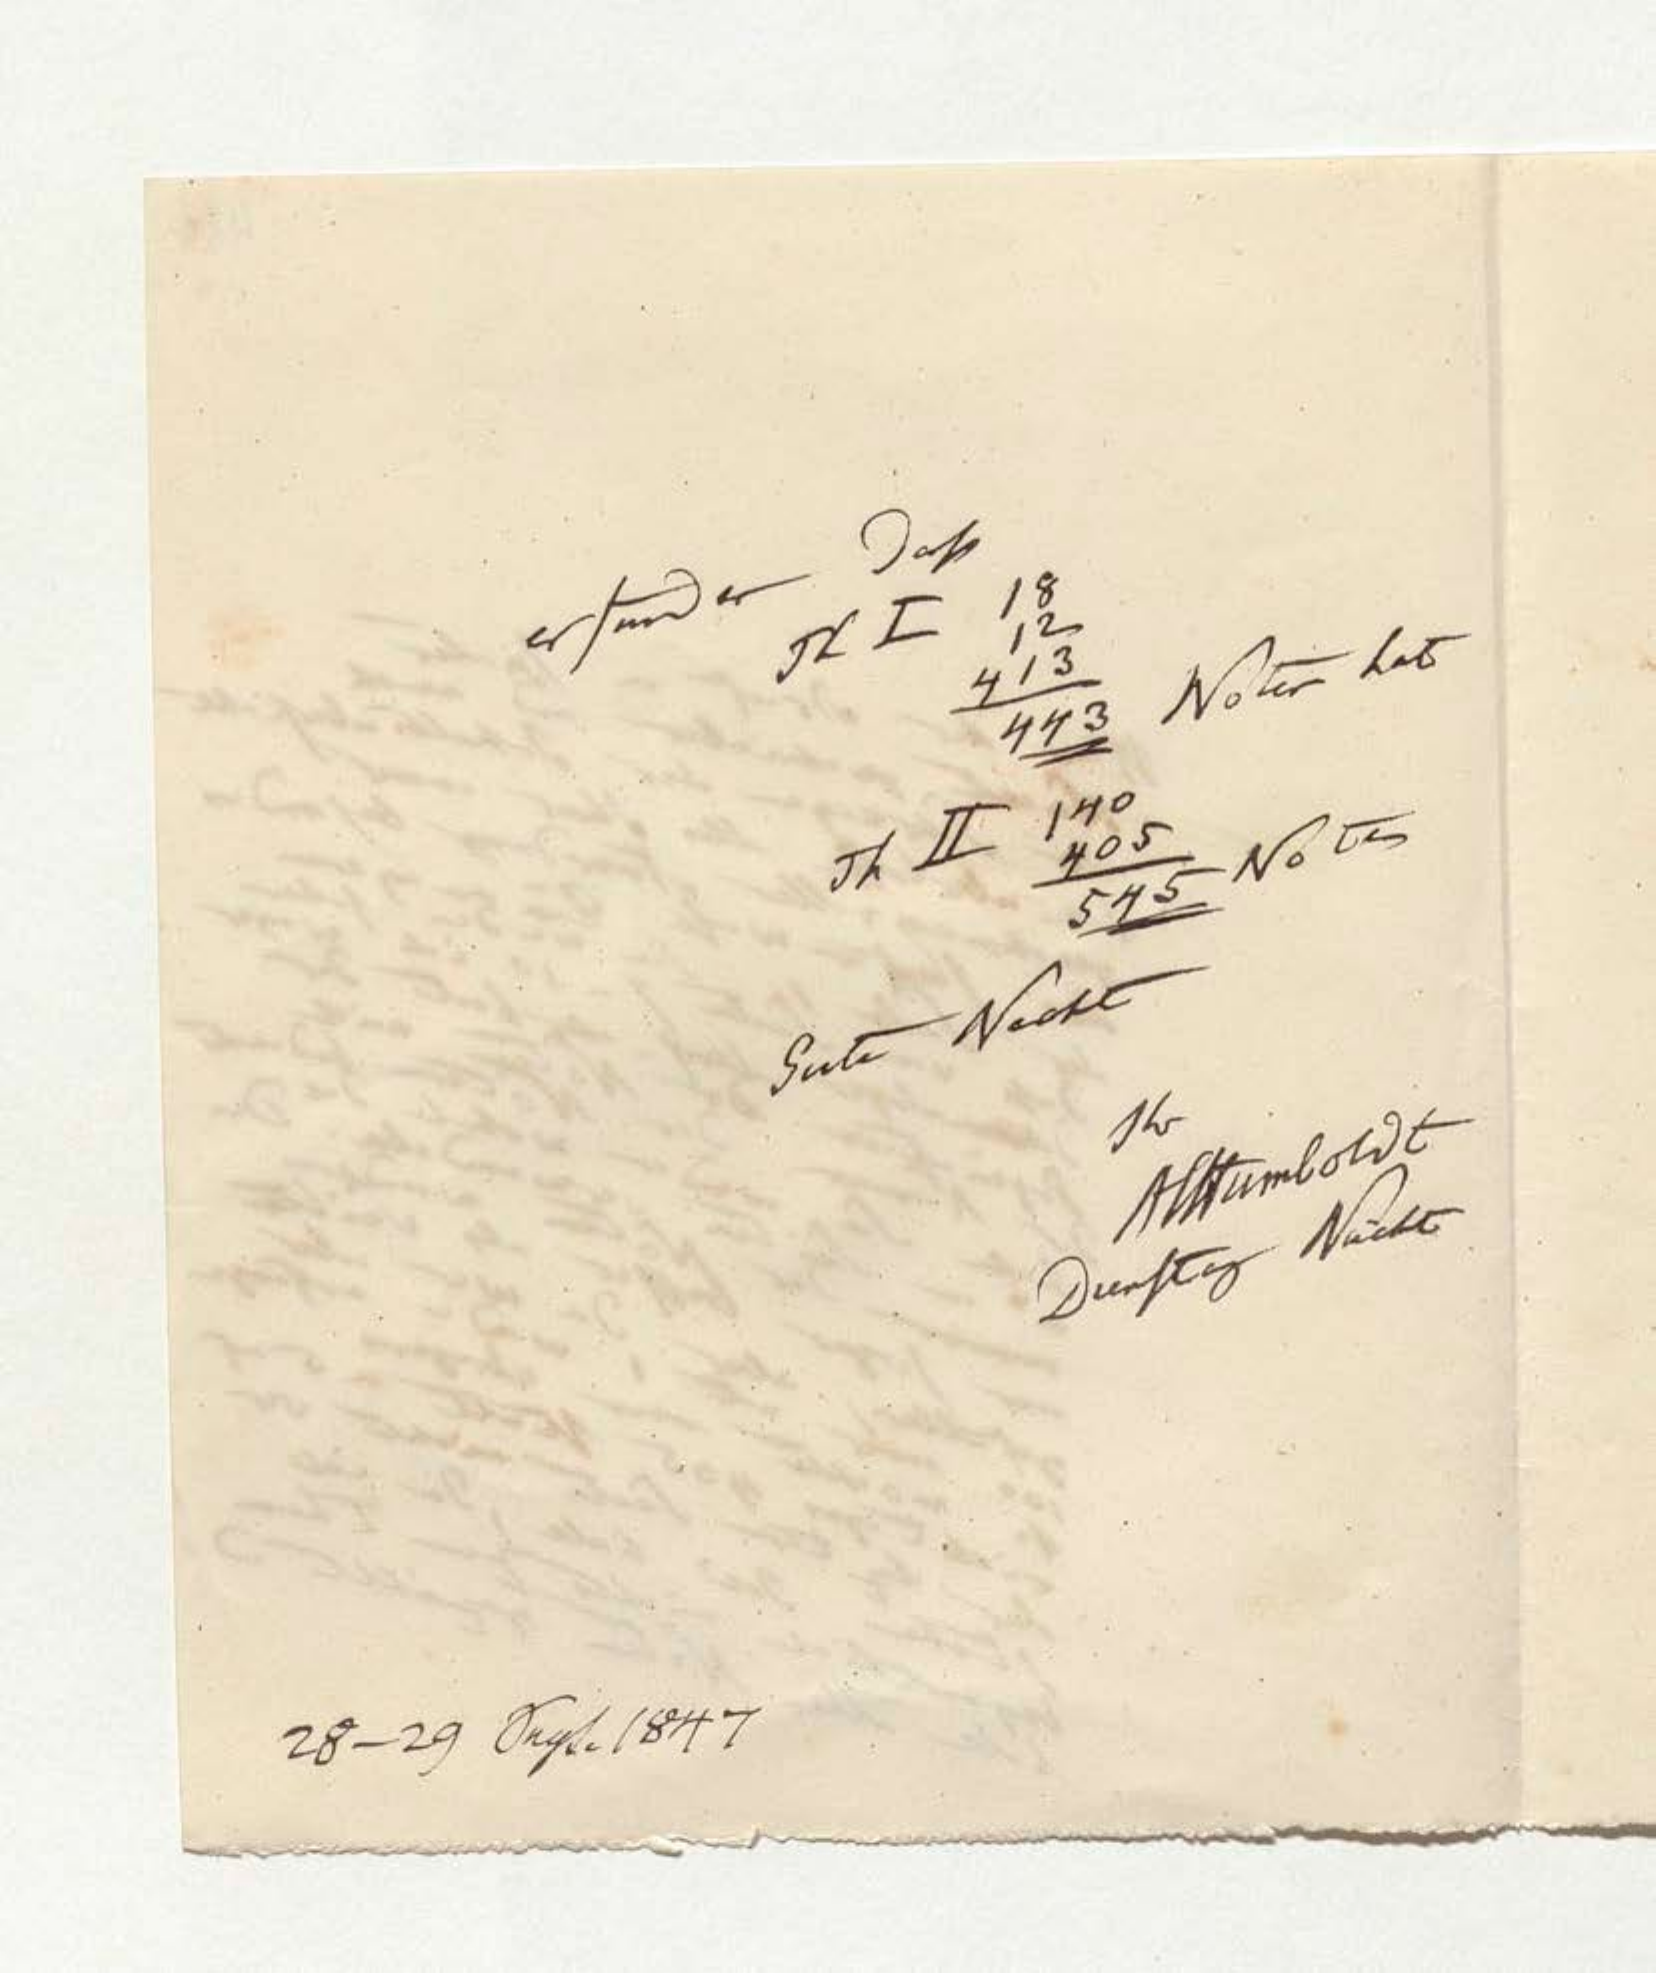 daß
Th I 18
12
413
443 Noten hat
Th II 140
405
545 Noten
Gute Nacht
Ihr
AlHumboldt
Dienstag Nacht
28–29 1847